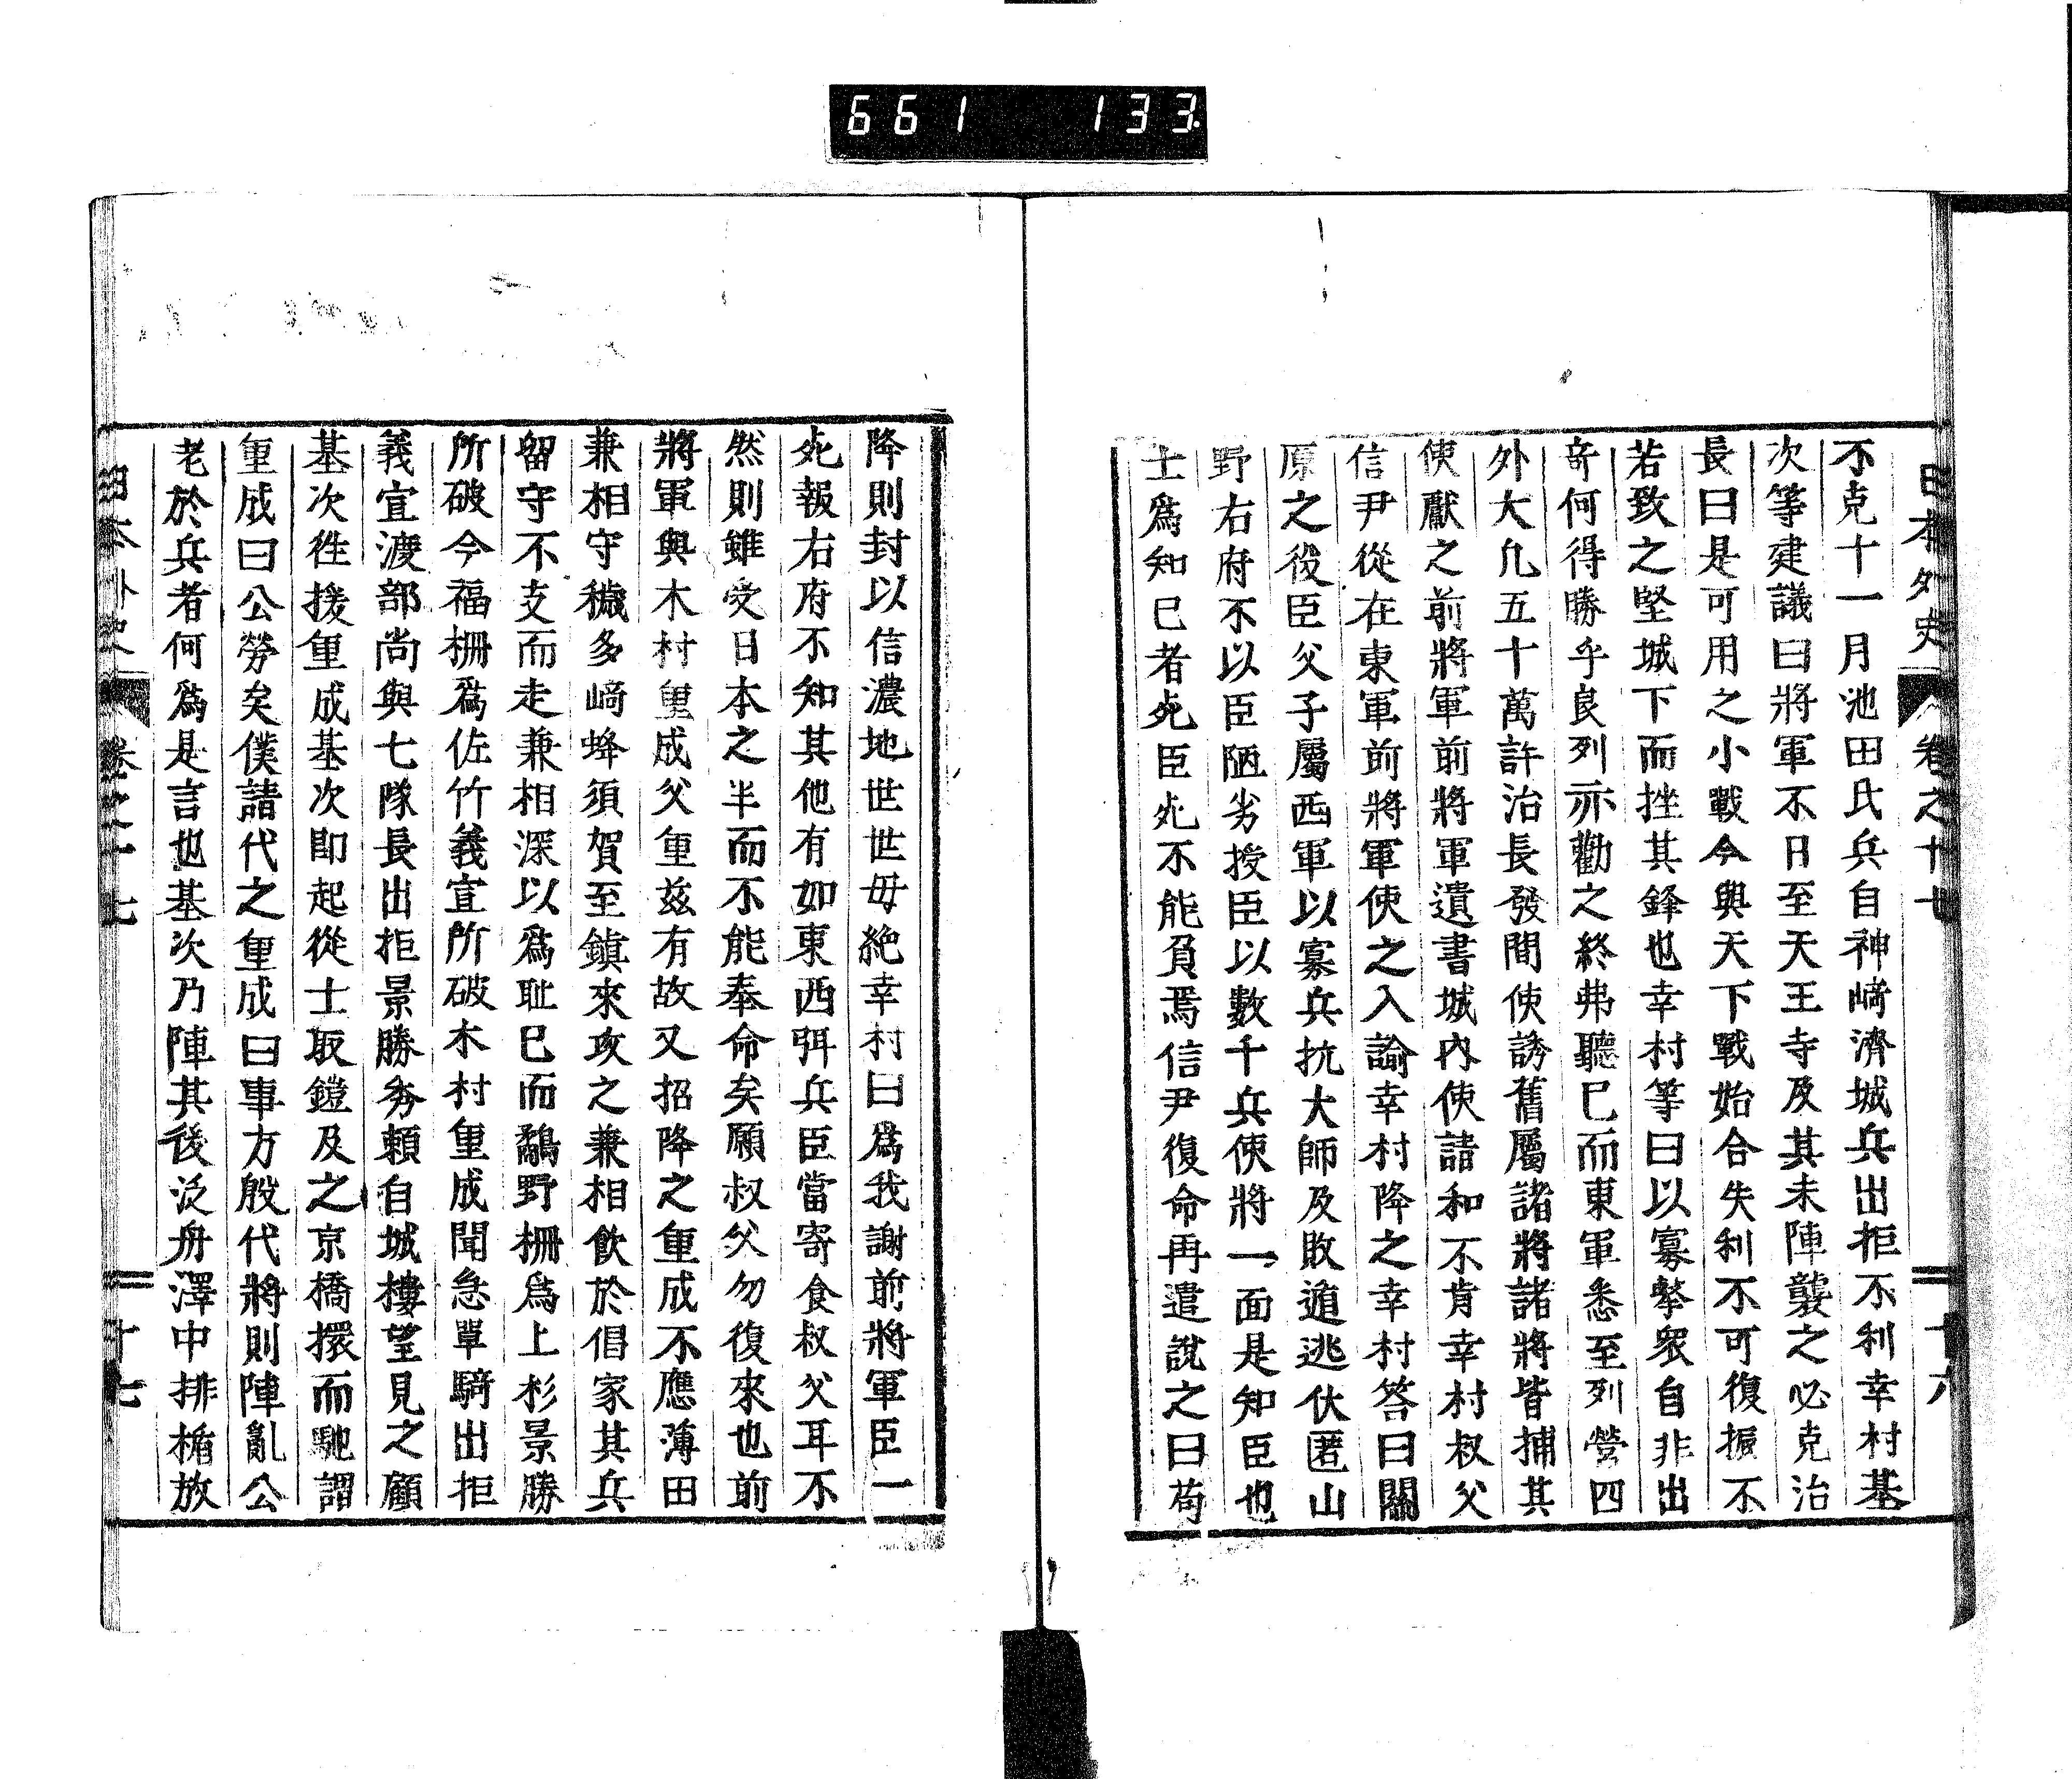 661 133.
日本外史 卷之十七 十六
不克十一月池田氏兵自神﨑濟城兵出拒不利幸村基
次等建議曰將軍不日至天王寺及其未陣襲之必克治
長曰是可用之小戰今與天下戰始合失利不可復振不
若致之堅城下而挫其鋒也幸村等曰以寡擊衆自非出
奇何得勝乎良列亦勸之終弗聽已而東軍悉至列營四
外大凢五十萬許治長發間使誘舊屬諸將諸將皆捕其
使獻之前將軍前將軍遺書城內使請和不肯幸村叔父
信尹從在東軍前將軍使之入諭幸村降之幸村答曰關
原之役臣父子屬西軍以寡兵抗大師及敗逋逃伏匿山
野右府不以臣陋劣授臣以數千兵使將一面是知臣也
士爲知已者死臣死不能負焉信尹復命再遣說之曰苟
降則封以信濃地世世毋絶幸村曰爲我謝前將軍臣一
死報右府不知其他有如東西弭兵臣當寄食叔父耳不
然則雖受日本之半而不能奉命矣願叔父勿復來也前
將軍與木村重成父重茲有故又招降之重成不應薄田
兼相守穢多﨑蜂須賀至鎮來攻之兼相飮於倡家其兵
留守不支而走兼相深以爲耻已而鷸野柵爲上杉景勝
所破今福柵爲佐竹義宣所破木村重成聞急單騎出拒
義宣渡部尚與七隊長出拒景勝秀賴自城樓望見之顧
基次徃援重成基次即起從士取鎧及之京橋擐而馳謂
重成曰公勞矣僕請代之重成曰事方殷代將則陣亂公
老於兵者何爲是言也基次乃陣其後泛舟澤中排楯放
日本外史 卷之十七 十七